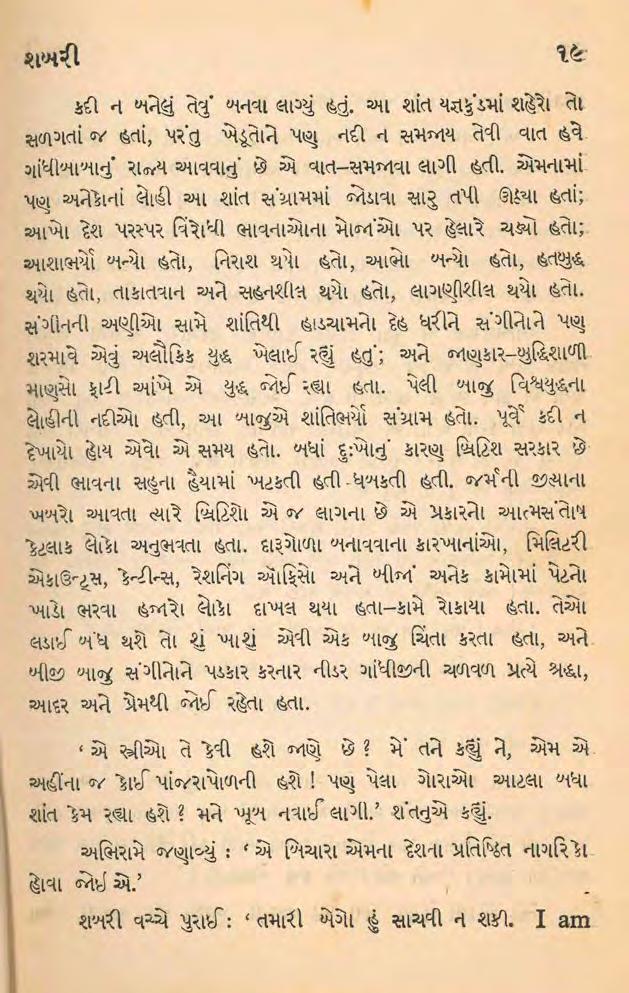 શબરી ૧૯
કદી ન બનેલું તેવું બનવા લાગ્યું હતું. આ શાંત યજ્ઞકુંડમાં શહેરો તો
સળગતાં જ હતાં, પરંતુ ખેડૂતોને પણ નદી ન સમજાય તેવી વાત હવે
ગાંધીબાબાનું રાજ્ય આવવાનું છે એ વાત–સમજાવા લાગી હતી. એમનામાં
પણ અનેકોનાં લોહી આ શાંત સંગ્રામમાં જોડાવા સારુ તપી ઊઠ્યા હતાં;
આખો દેશ પરસ્પર વિરોધી ભાવનાઓના મોજાંઓ પર હેલારે ચડ્યો હતો;
આશાભર્યો બન્યો હતો, નિરાશ થયો હતો, આભો બન્યો હતો, હતબુદ્ધ
થયો હતો, તાકાતવાન અને સહનશીલ થયો હતો, લાગણીશીલ થયો હતો.
સંગીનની અણીઓ સામે શાંતિથી હાડચામનો દેહ ધરીને સંગીનોને પણ
શરમાવે એવું અલૌકિક યુદ્ધ ખેલાઈ રહ્યું હતું; અને જાણકાર–બુદ્ધિશાળી
માણસો ફાટી આંખે એ યુદ્ધ જોઈ રહ્યા હતા. પેલી બાજુ વિશ્વયુદ્ધના
લોહીની નદીઓ હતી, આ બાજુએ શાંતિભર્યો સંગ્રામ હતો. પૂર્વે કદી ન
દેખાયો હોય એવો એ સમય હતો. બધાં દુઃખોનું કારણ બ્રિટિશ સરકાર છે
એવી ભાવના સહુના હૈયામાં ખટકતી હતી-ધબકતી હતી. જર્મની જીત્યાના
ખબરો આવતા ત્યારે બ્રિટિશો એ જ લાગના છે એ પ્રકારનો આત્મસંતોષ
કેટલાક લોકો અનુભવતા હતા. દારૂગોળા બનાવવાના કારખાનાંઓ, મિલિટરી
એકાઉન્ટ્સ, કેન્ટીન્સ, રેશનિંગ ઑફિસો અને બીજાં અનેક કામોમાં પેટનો
ખાડો ભરવા હજારો લોકો દાખલ થયા હતા–કામે રોકાયા હતા. તેઓ
લડાઈ બંધ થશે તો શું ખાશું એવી એક બાજુ ચિંતા કરતા હતા, અને
બીજી બાજુ સંગીનોને પડકાર કરનાર નીડર ગાંધીજીની ચળવળ પ્રત્યે શ્રદ્ધા,
આદર અને પ્રેમથી જોઈ રહેતા હતા.
‘ એ સ્ત્રીઓ તે કેવી હશે જાણે છે ? મેં તને કહ્યું ને, એમ એ
અહીંના જ કોઈ પાંજરાપોળની હશે ! પણ પેલા ગોરાઓ આટલા બધા
શાંત કેમ રહ્યા હશે ? મને ખૂબ નવાઈ લાગી.’ શંતનુએ કહ્યું.
અભિરામે જણાવ્યું : ‘ એ બિચારા એમના દેશના પ્રતિષ્ઠિત નાગરિકો
હોવા જોઈએ.’
શબરી વચ્ચે પુરાઈ : ‘ તમારી બેગો હું સાચવી ન શકી. I am